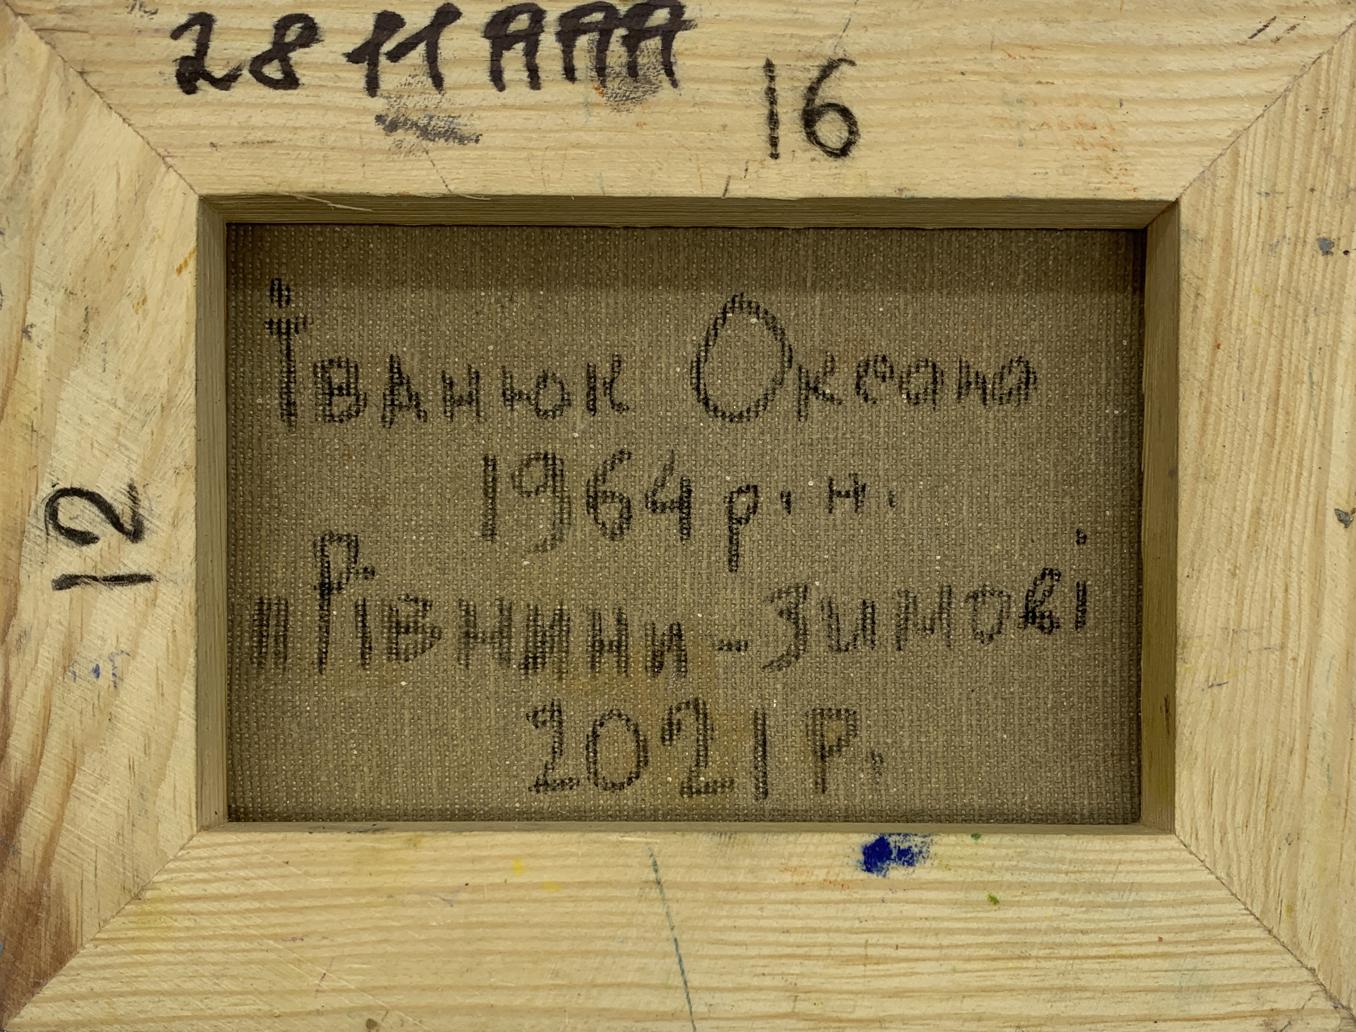 2811ААА
16
12
Іванюк Оксана
1964 р. н.
"Рівнини-Зимові
2021 р.